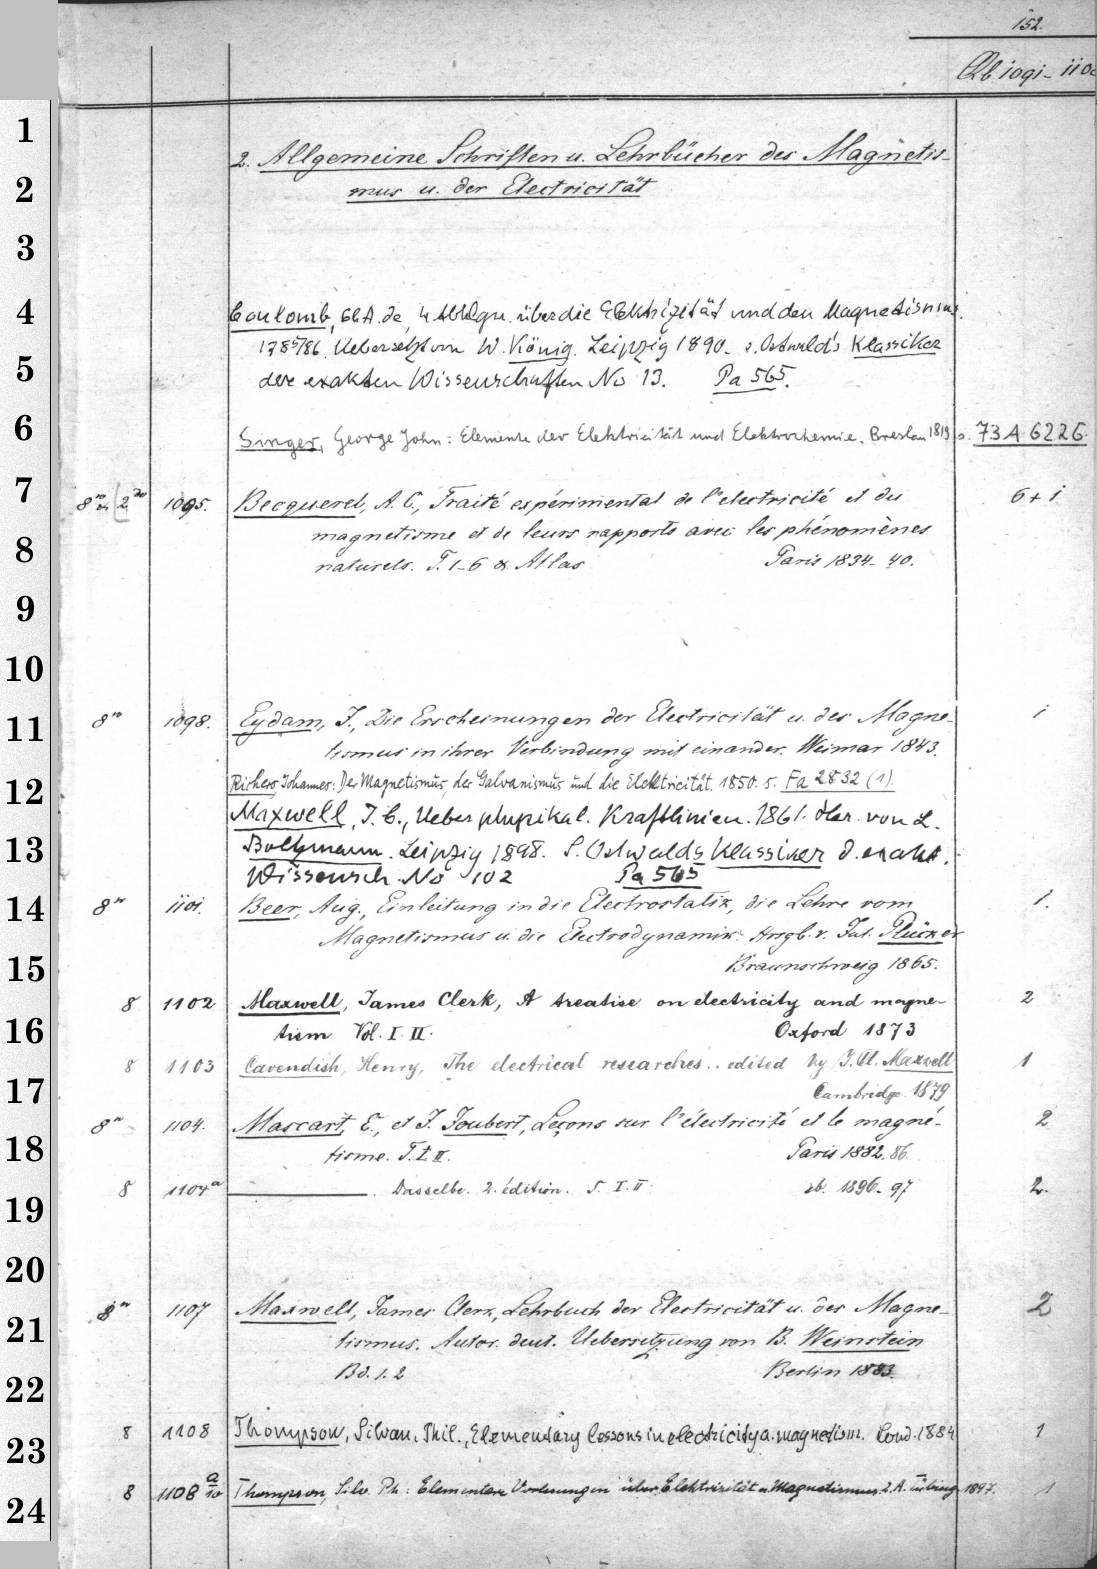 152.
Qb 1091-110
1
2. Allgemeine Schriften u. Lehrbücher des Magnetis-
2
mus u. der Electricität
3
4
Coulomb, Ch A. de, 4 Abhdgn. über die Elektrizität und den Magnetismus.
1785/86 Uebersetzt von W. König. Leipzig 1890. s. Ostwald's Klassiker
5
der exakten Wissenschaften No 13. Pa 565.
6
Singer, George John: Elemente der Elektricität und Elektrochemie. Breslau 1819 s. 73 A 6226.
7
1095. Becquerel, A. C., Traité expérimental de l'electricité et du 6+1
magnetisme et de leurs rapports avec les phénomènes
8
naturels. T. 1-6 & Atlas Paris 1834-40.
9
10
11
8º 1098. Eydam, J., Die Erscheinungen der Electricität u. des Magne- 1
tismus in ihrer Verbindung mit einander. Weimar 1843.
12
Johannes: Der Magnetismus, der Galvanismus und die Elektricität. 1850. s. Fa 2832 (1).
Maxwell, J. C., Ueber physikal. Kraftlinien. 1861. Her. von L.
13
Boltzmann. Leipzig 1898. S. Ostwalds Klassiker d. exakt.
Wissensch. No 102 Pa 565
14
8º 1101. Beer, Aug., Einleitung in die Electrostatik, die Lehre vom 1.
Magnetismus u. die Electrodynamik. Hrsgb. v. Jul. Plücker
15
Braunschweig 1865.
8 1102 Maxwell, James Clerk, A treatise on electricity and magne- 2
16
tism Vol. I. II. Oxford 1873
8 1103 Cavendish, Henry, The electrical researches .. edited by J. Cl. Maxwell 1
17
Cambridge 1879
8º 1104. Mascart, E., et J. Joubert, Leçons sur l'électricité et le magné- 2
18
tisme. T. I. II. Paris 1882. 86.
8 1104a ——— . Dasselbe. 2. édition. T. I. II. ib. 1896-97 2.
19
20
8º 1107 Maxwell, James Clerk, Lehrbuch der Electricität u. des Magne- 2
21
tismus. Autor. deut. Uebersetzung von B. Weinstein
22
Bd. 1. 2 Berlin 1883.
23
8 1108 Thompson, Silvan. Phil., Elementary lessons in electricity a. magnetism. Lond. 1884 1
24
8 1108 a/10 Thompson, Silv. Ph.: Elementare Vorlesungen über Elektrizität u. Magnetismus. 2. A. Tübing. 1897. 1